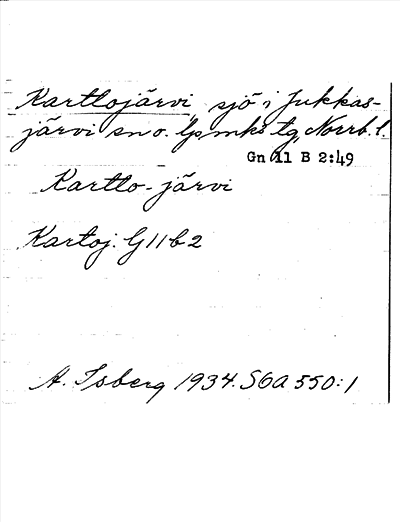 Karttojärvi, sjö i Jukkas-
järvi sn o. lpmks tg, Norrb. l.
Gn 11 B 2:49
Kartto-järvi
Kartoj. G11b2
A. Isberg 1934. SOA 550:1